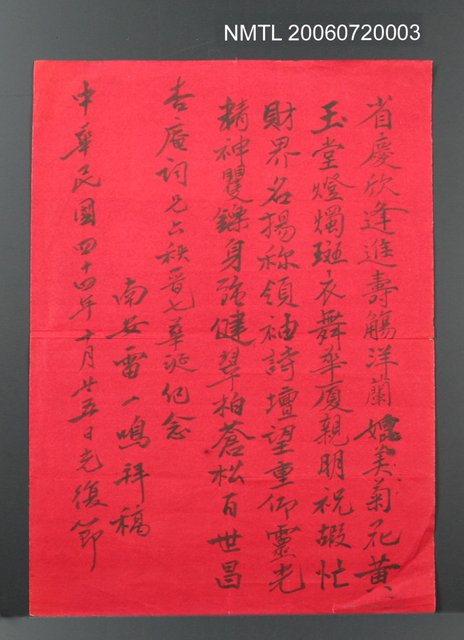 NMTL 20060720003
省慶欣逢進壽觴洋蘭媲美菊花黃
玉堂燈燭斑衣舞華廈親朋祝嘏忙
財界名揚称領袖詩壇望重仰靈光
精神矍鑠身強健翠柏蒼松百世昌
杏庵詞兄六秩晋七華诞紀念
南安雷一鳴拜稿
中華民國四十四年十月廿五日光復節